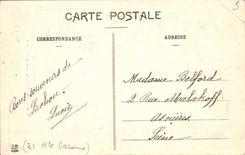 CARTE POSTALE
5
CORRESPONDANCE
ADRESSE
Bons souvenirs de
Luchon
Lucie
Madame Belford
2 Rue Malakoff
Asnières
Seine
(31 Hte Garonne)